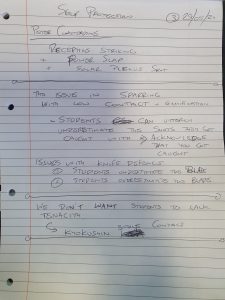 Self Protection
③ 29/05/21
Power Continuums
Receptive Striking
+ Power Slap
+ Solar Plexus Shot
The issue in Sparring
with low contact + gamification
↳ Students can utterly
underestimate the shots they get
caught with → Acknowledge
that you got
caught
Issues with knife defence
① Students underestimate the blade
② Students overestimate the blade
We don't want students to lack
tenacity
↳ Kyokushin Contact